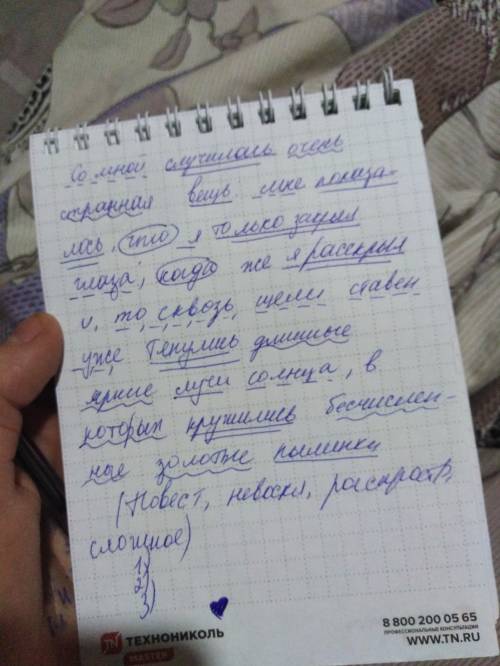 Со мной случилась очень
странная вещь. мне показа-
лось, что я только закрыл
глаза, когда же я раскрыл
и, то сквозь щели ставен
уже тянулись длинные
яркие лучи солнца, в
которых кружились бесчислен-
ные золотые пылинки
(Повест, невоскл, распрост,
сложное)
1)
2)
3)
ТЕХНОНИКОЛЬ
MASTER
8 800 200 05 65
ПРОФЕССИОНАЛЬНЫЕ КОНСУЛЬТАЦИИ
WWW.TN.RU